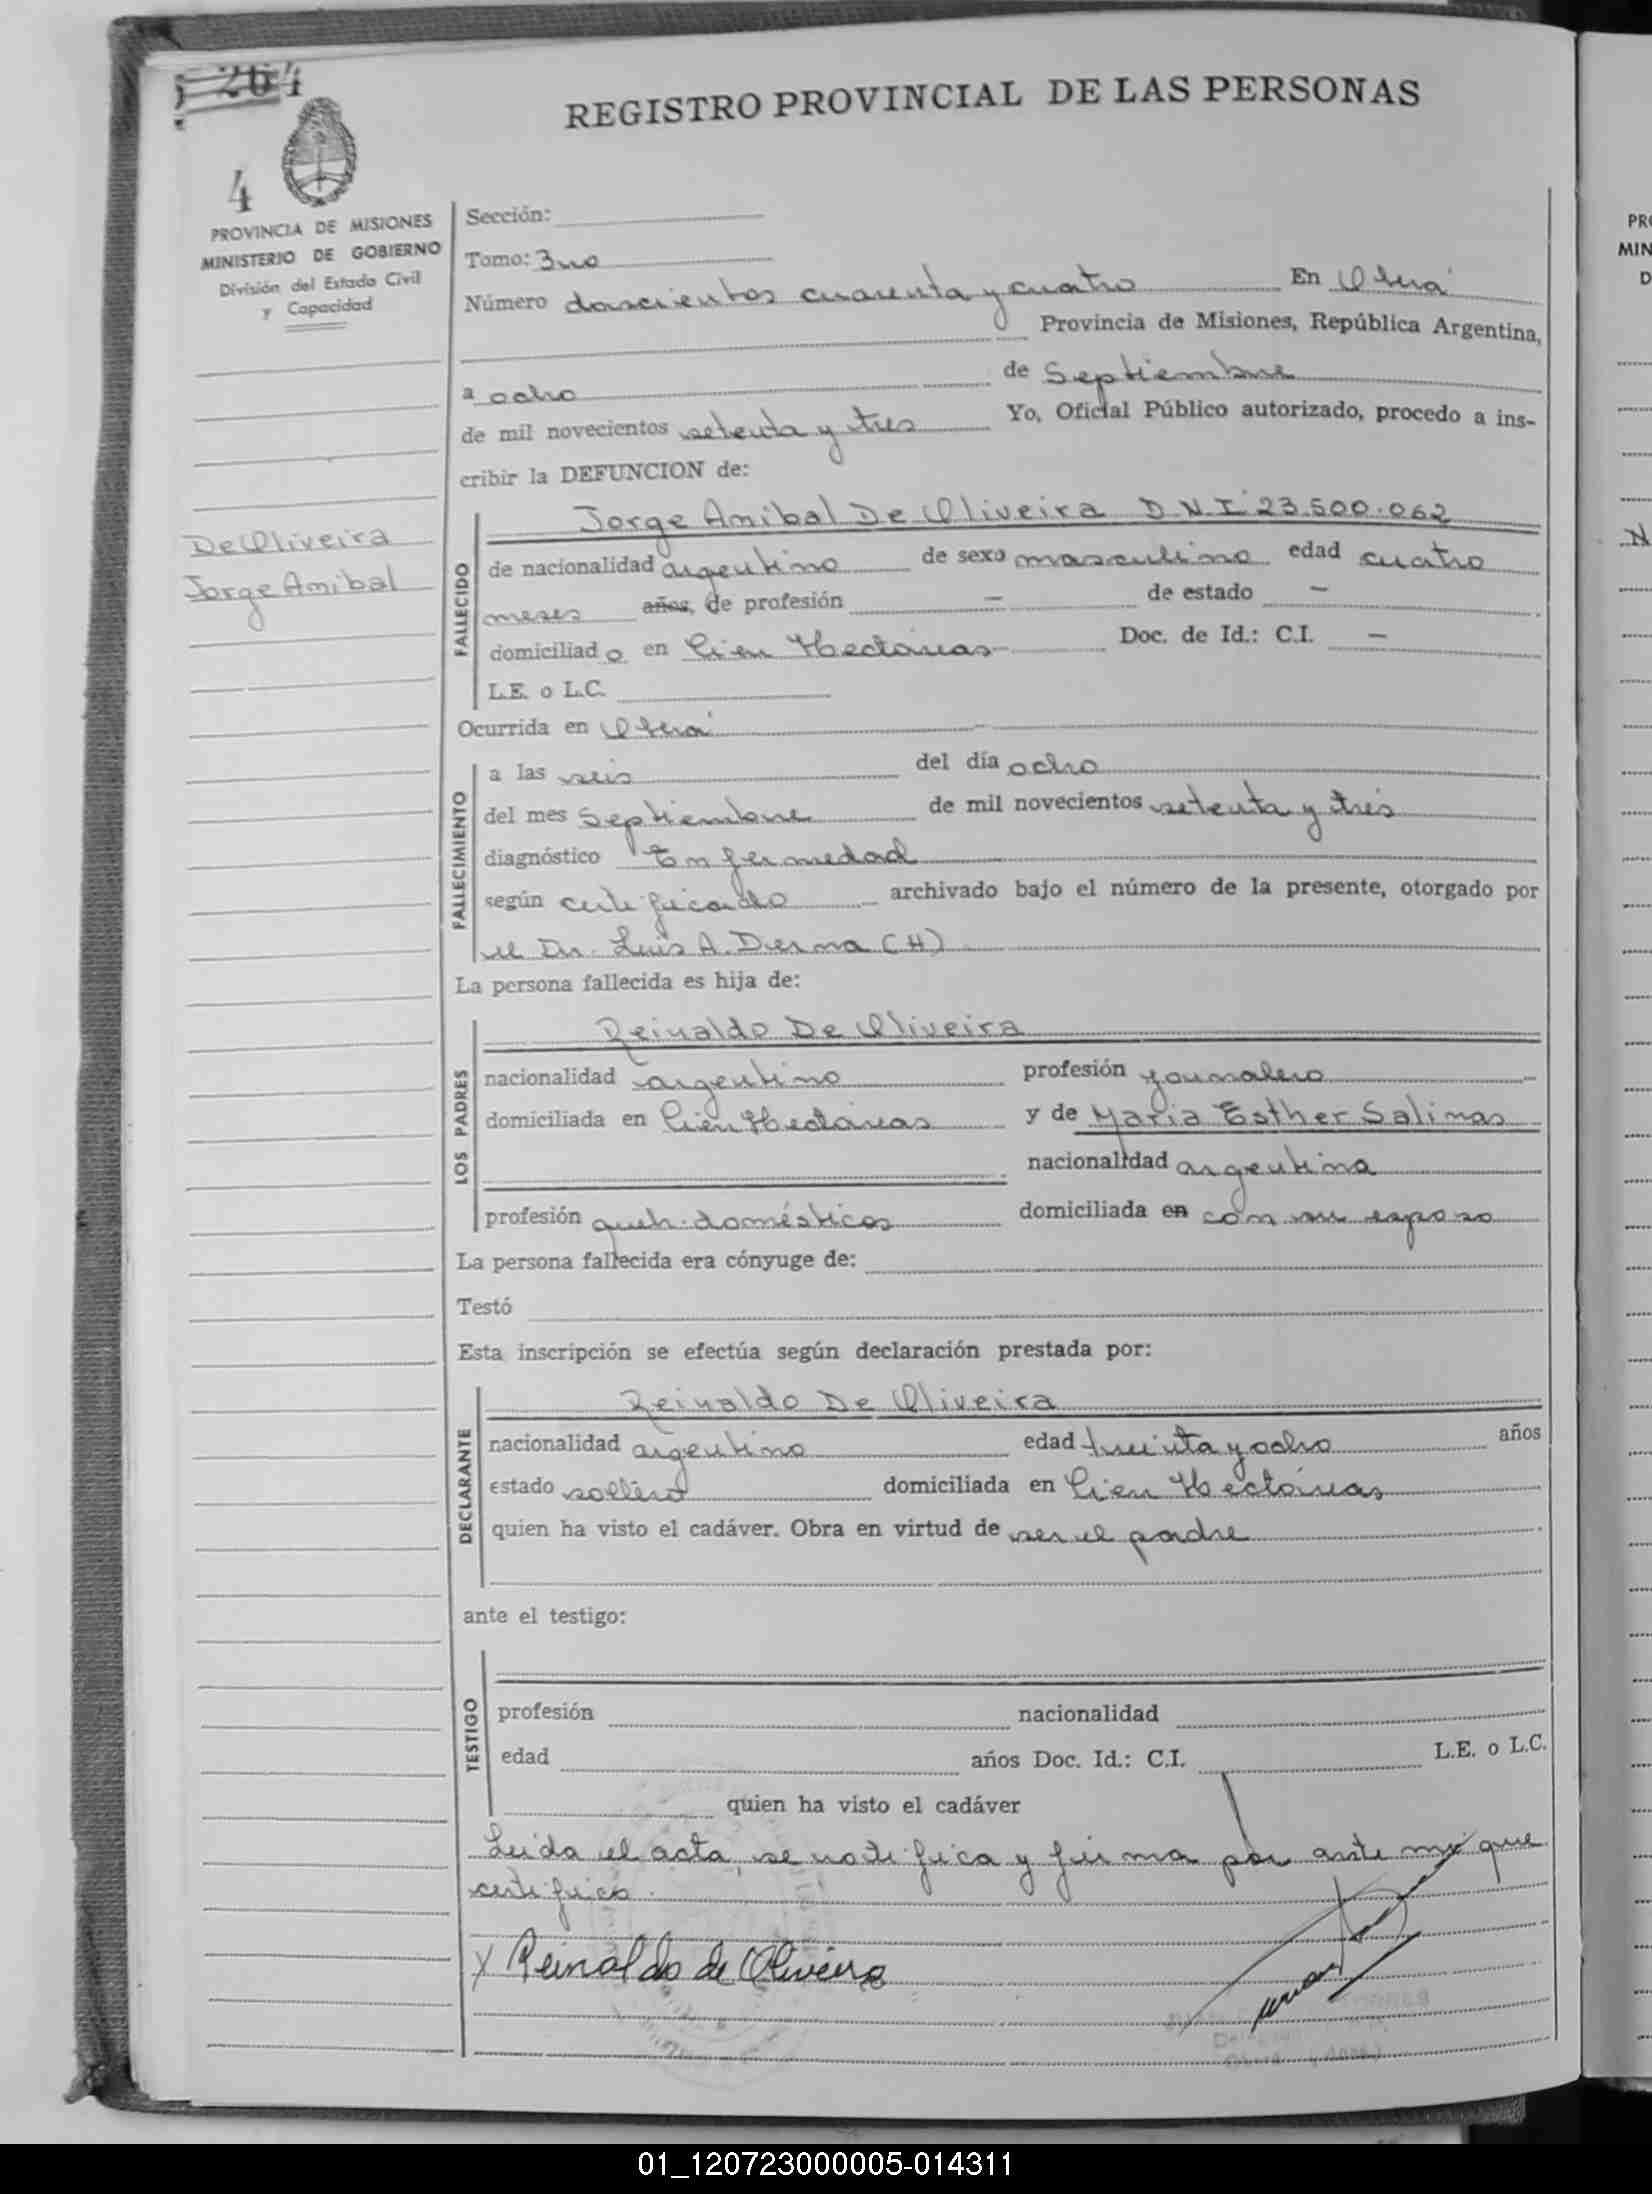 264
4
REGISTRO PROVINCIAL DE LAS PERSONAS
PROVINCIA DE MISIONES
MINISTERIO DE GOBIERNO
División del Estado Civil
y Capacidad
De Oliveira
Jorge Anibal
Sección:
Tomo: 3ro
Número doscientos cuarenta y cuatro En Oberá
Provincia de Misiones, República Argentina,
a ocho de Septiembre
de mil novecientos setenta y tres Yo, Oficial Público autorizado, procedo a ins-
cribir la DEFUNCION de:
FALLECIDO
Jorge Anibal De Oliveira D.N.I 23.500.062
de nacionalidad argentino de sexo masculino edad cuatro
meses años, de profesión — de estado —
domiciliado en Cien Hectáreas Doc. de Id.: C.I. —
L.E. o L.C.
Ocurrida en Oberá
FALLECIMIENTO
a las seis del día ocho
del mes Septiembre de mil novecientos setenta y tres
diagnóstico Enfermedad
según certificado archivado bajo el número de la presente, otorgado por
el Dr. Luis A. Derna (H)
La persona fallecida es hija de:
LOS PADRES
Reinaldo De Oliveira
nacionalidad argentino profesión jornalero
domiciliada en Cien Hectáreas y de Maria Esther Salinas
nacionalidad argentina
profesión queh. domésticos domiciliada en con su esposo
La persona fallecida era cónyuge de:
Testó
Esta inscripción se efectúa según declaración prestada por:
DECLARANTE
Reinaldo De Oliveira
nacionalidad argentino edad treinta y ocho años
estado soltero domiciliada en Cien Hectáreas
quien ha visto el cadáver. Obra en virtud de ser el padre
ante el testigo:
TESTIGO
profesión nacionalidad
edad años Doc. Id.: C.I. L.E. o L.C.
quien ha visto el cadáver
Leida el acta, se notifica y firma por ante mi que
certifico.
X Reinaldo de Oliveira
PRO
MIN
D
N
01_120723000005-014311